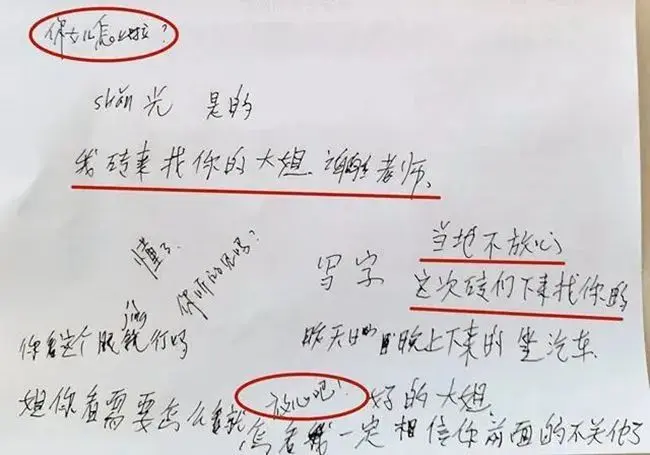 你女儿怎么啦？
shǎn光 是的
我砖来找你的大姐 谢谢老师、
懂了、
你听的见吗？
写字
当地不放心
这次砖们下来找你的
你看这个眼jìng镜行吗
昨天 晚上下来的 坐汽车、
姐你看需要怎么看就
放心吧！
好的大姐
怎看 我一定相信你前面的不关他了